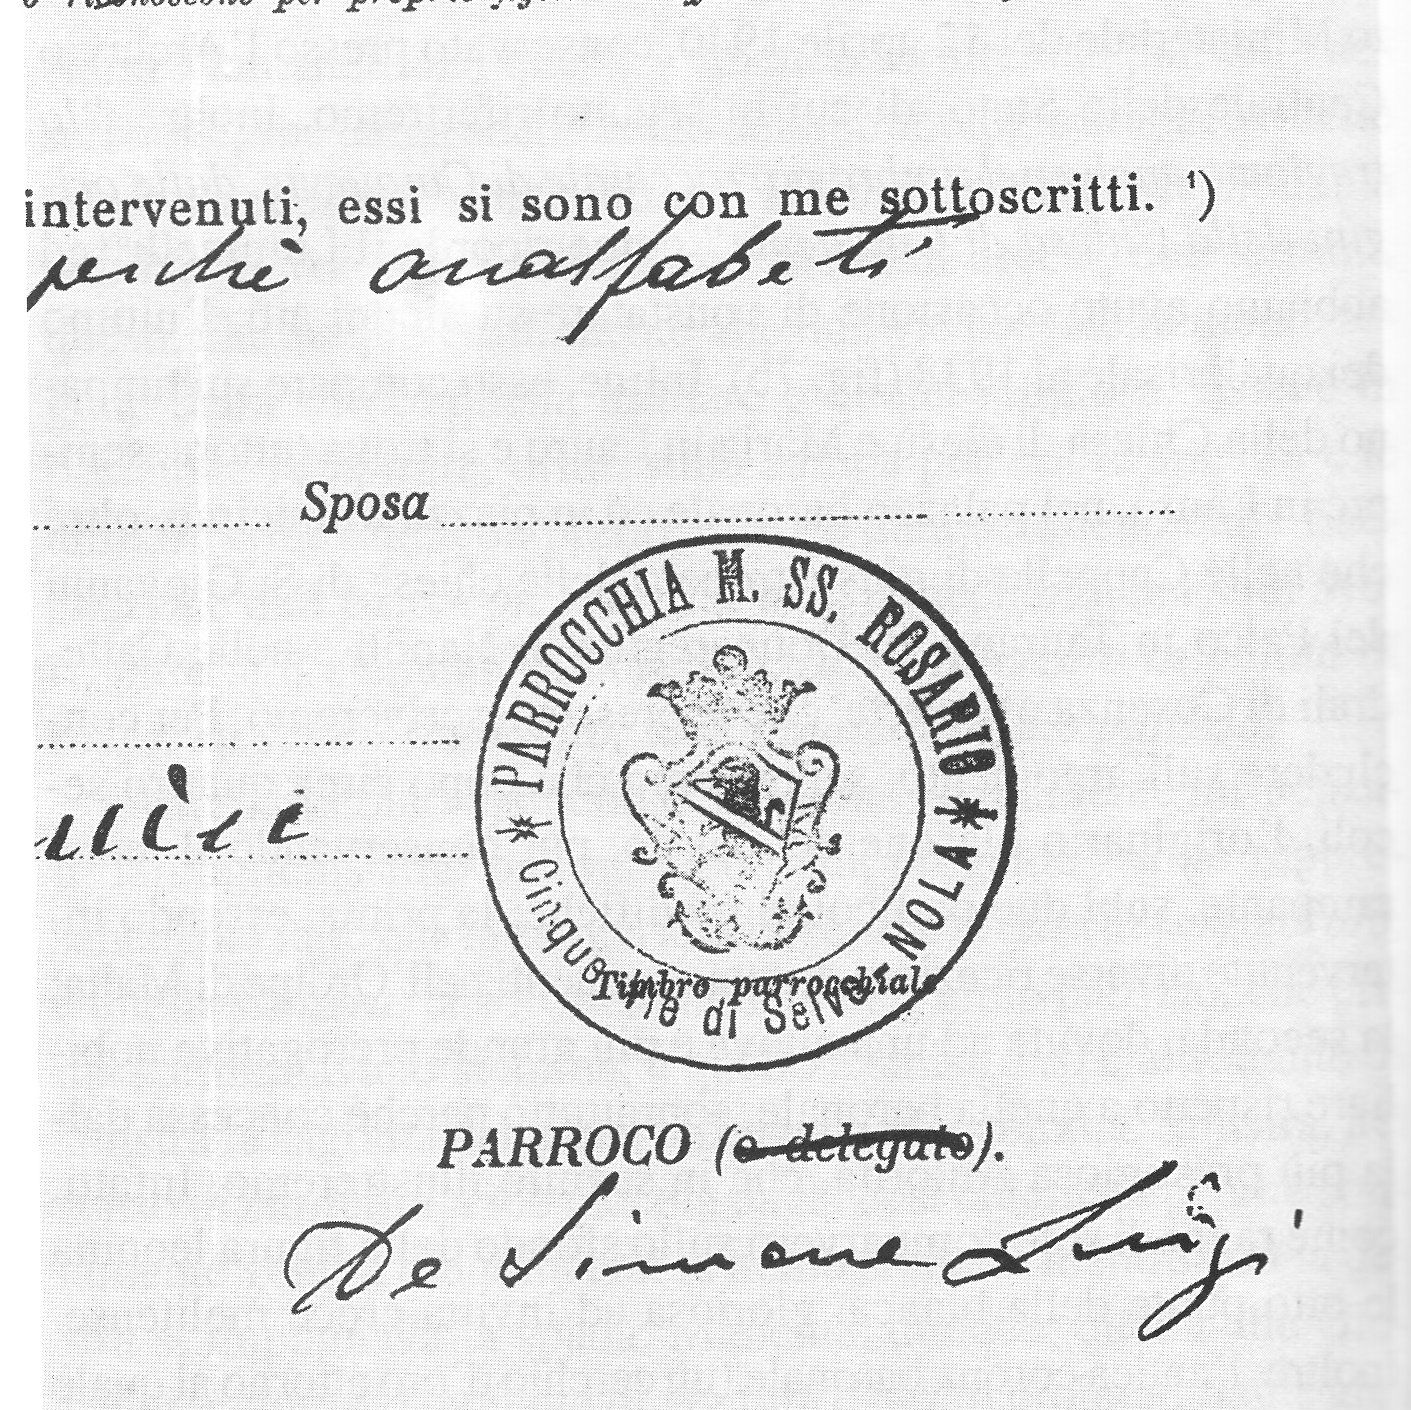 intervenuti, essi si sono con me sottoscritti. ¹)
perchè analfabeti
Sposa
PARROCCHIA M. SS. ROSARIO
Cinque Vie di Selva - NOLA
Timbro parrocchiale
PARROCO (o delegato).
De Simone Luigi